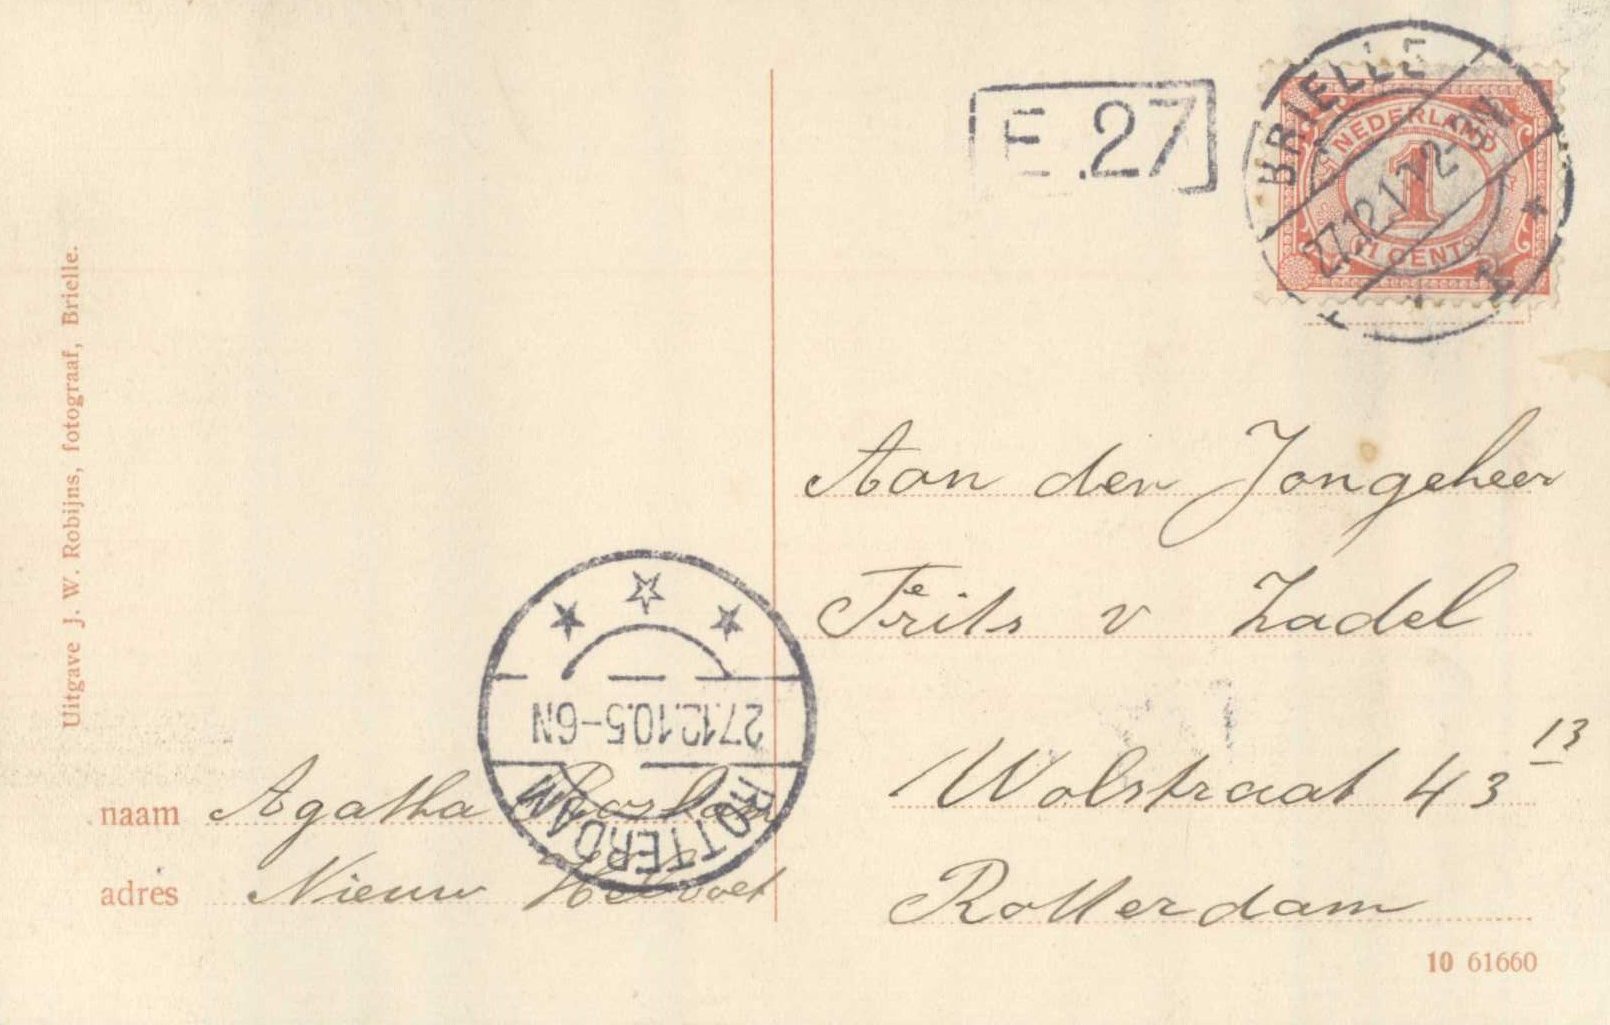 Uitgave J. W. Robijns, fotograaf, Brielle.
E.27
BRIELLE
NEDERLAND
1
1 CENT
Aan den Jongeheer
Frits v Zadel
Wolstraat 43 13
Rotterdam
27.12.10.5-6N
ROTTERDAM
naam Agatha
adres Nieuw Helvoet
10 61660